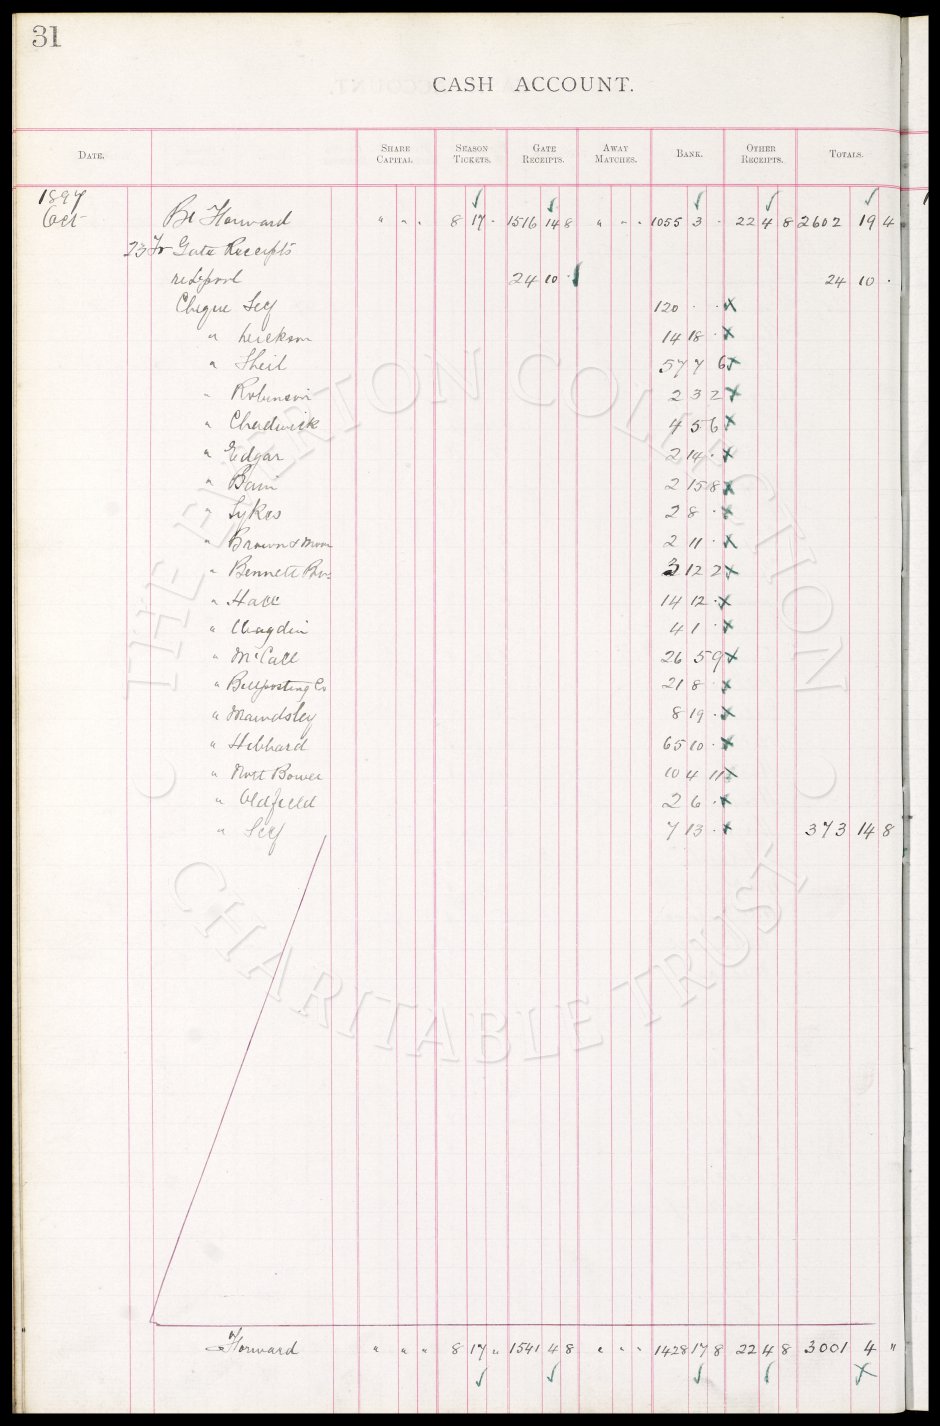 31
CASH ACCOUNT.
DATE. SHARE CAPITAL SEASON TICKETS. GATE RECEIPTS. AWAY MATCHES. BANK. OTHER RECEIPTS. TOTALS.
1897
Oct Bt Forward " " " 8 17 . 1516 14 8 " " " 1055 3 . 22 4 8 2602 19 4
23 To Gate Receipts
re L'pool 24 10 . 24 10 .
Cheque Self 120 . .
" 14 18 .
" Sheil 57 7 6
" Robinson 2 3 2
" Chadwick 4 5 6
" Edgar 2 14 .
" 2 15 8
" Sykes 2 8 .
" Brown & Moon 2 11 .
" Bennett Bros 3 12 2
" Hall 14 12 .
" 4 1 .
" McCall 26 5 9
" Billposting Co 21 8 .
" 8 19 .
" Hibbard 65 10 .
" Nott Bower 10 4 11
" Oldfield 2 6 .
" Self 7 13 . 373 14 8
Forward " " " 8 17 " 1541 4 8 " " " 1428 17 8 22 4 8 3001 4 "
THE EVERTON COLLECTION
CHARITABLE TRUST